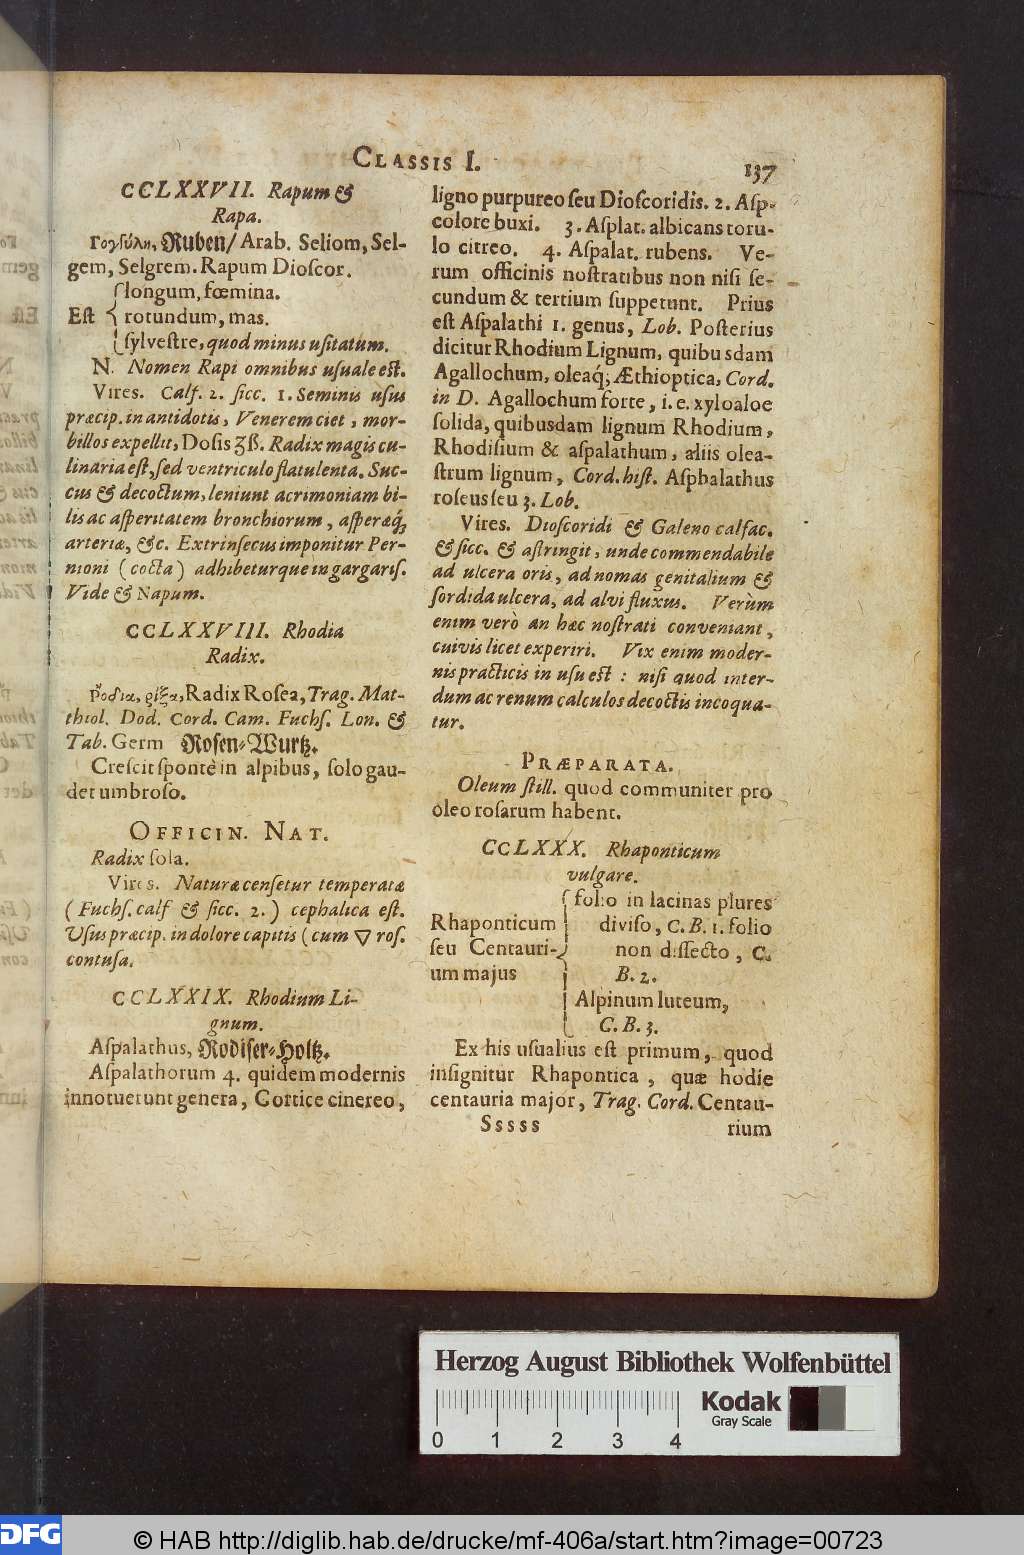 CLASSIS I.
137
CCLXXVII. Rapum &
Rapa.
Γογγύλη, Ruben/ Arab. Seliom, Sel-
gem, Selgrem. Rapum Dioſcor.
longum, fœmina.
Eſt rotundum, mas.
ſylveſtre, quod minus uſitatum.
N. Nomen Rapi omnibus uſuale eſt.
Vires. Calf. 2. ſicc. 1. Seminis uſus
præcip. in antidotis, Venerem ciet, mor-
billos expellit, Doſis ʒß. Radix magis cu-
linaria eſt, ſed ventriculo flatulenta. Suc-
cus & decoctum, leniunt acrimoniam bi-
lis ac aſperitatem bronchiorum, aſperæq́;
arteriæ, &c. Extrinſecus imponitur Per-
nioni (cocta) adhibeturque in gargariſ.
Vide & Napum.
CCLXXVIII. Rhodia
Radix.
ῥοδία, ῥίζα, Radix Roſea, Trag. Mat-
thiol. Dod. Cord. Cam. Fuchſ. Lon. &
Tab. Germ Roſen-Wurtz.
Creſcit ſpontè in alpibus, ſolo gau-
det umbroſo.
OFFICIN. NAT.
Radix ſola.
Vires. Naturæ cenſetur temperatæ
(Fuchſ. calf & ſicc. 2.) cephalica eſt.
Uſus præcip. in dolore capitis (cum ▽ roſ.
contuſa.
CCLXXIX. Rhodium Li-
gnum.
Aſpalathus, Rodiſer-Holtz.
Aſpalathorum 4. quidem modernis
innotuerunt genera, Cortice cinereo,
ligno purpureo ſeu Dioſcoridis. 2. Aſp.
colore buxi. 3. Aſplat. albicans toru-
lo citreo. 4. Aſpalat. rubens. Ve-
rum officinis noſtratibus non niſi ſe-
cundum & tertium ſuppetunt. Prius
eſt Aſpalathi 1. genus, Lob. Poſterius
dicitur Rhodium Lignum, quibusdam
Agallochum, oleaq́; Æthioptica, Cord.
in D. Agallochum forte, i. e. xyloaloe
ſolida, quibusdam lignum Rhodium,
Rhodiſium & aſpalathum, aliis olea-
ſtrum lignum, Cord. hiſt. Aſphalathus
roſeus ſeu 3. Lob.
Vires. Dioſcoridi & Galeno calfac.
& ſicc. & aſtringit, unde commendabile
ad ulcera oris, ad nomas genitalium &
ſordida ulcera, ad alvi fluxus. Verùm
enim verò an hæc noſtrati conveniant,
cuivis licet experiri. Vix enim moder-
nis practicis in uſu eſt: niſi quod inter-
dum ac renum calculos decoctis incoqua-
tur.
PRÆPARATA.
Oleum ſtill. quod communiter pro
oleo roſarum habent.
CCLXXX. Rhaponticum
vulgare.
folio in lacinas plures
Rhaponticum diviſo, C. B. 1. folio
ſeu Centauri- non diſſecto, C.
um majus B. 2.
Alpinum luteum,
C. B. 3.
Ex his uſualius eſt primum, quod
inſignitur Rhapontica, quæ hodie
centauria major, Trag. Cord. Centau-
Sssss
rium
Herzog August Bibliothek Wolfenbüttel
Kodak
Gray Scale
0 1 2 3 4
DFG
© HAB http://diglib.hab.de/drucke/mf-406a/start.htm?image=00723